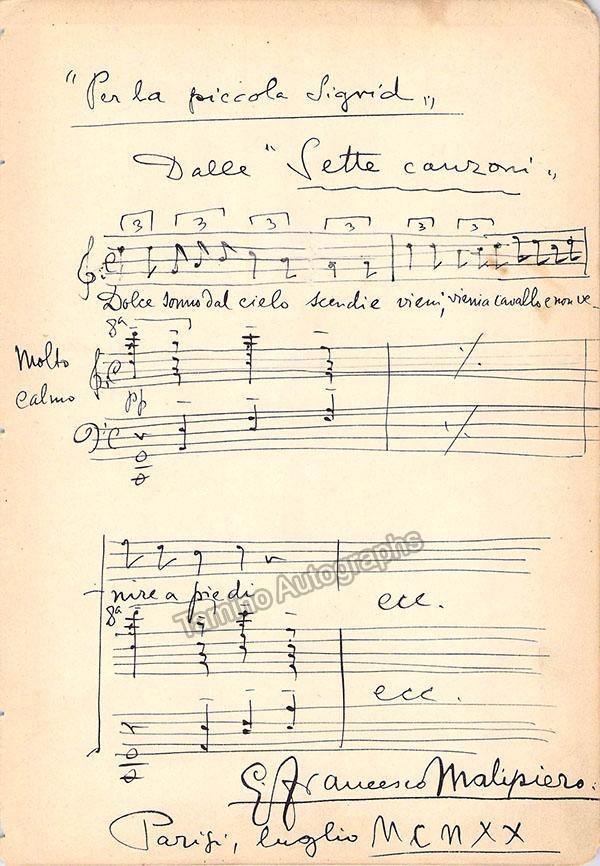 "Per la piccola Sigrid„
Dalle "Sette canzoni„
3 3 3 3 3 3
Dolce sonno dal cielo scendi e vieni, vieni a cavallo e non ve-
8ª
Molto
calmo
pp
nire a piedi
ecc.
8ª
ecc.
G. Francesco Malipiero.
Parigi, luglio MCMXX
Tamino Autographs